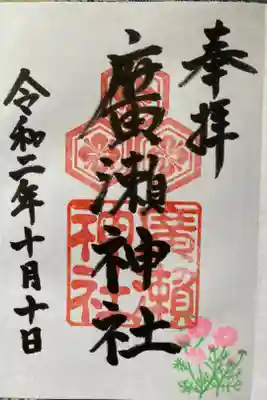 奉拝
廣瀬神社
廣瀬神社
令和二年十月十日